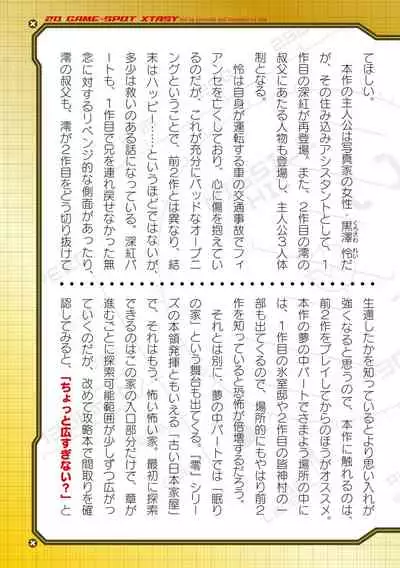 20 GAME-SPOT XTASY
てほしい。
　本作の主人公は写真家の女性・黒澤怜だ
くろさわ れい
が、その住み込みアシスタントとして、1
作目の深紅が再登場。また、2作目の澪の
叔父にあたる人物も登場し、主人公3人体
制となる。
　怜は自身が運転する車の交通事故でフィ
アンセを亡くしており、心に傷を抱えてい
るのだが、これが充分にバッドなオープニ
ングということで、前2作とは異なり、結
末はハッピー……というほどではないが、
多少は救いのある話になっている。深紅パ
ートも、1作目で兄を連れ戻せなかった無
念に対するリベンジ的な側面があったり、
澪の叔父も、澪が2作目をどう切り抜けて
生還したかを知っているとより思い入れが
強くなると思うので、本作に触れるのは
前2作をプレイしてからのほうがオススメ。
本作の夢の中パートでさまよう場所の中に
は、1作目の氷室邸や2作目の皆神村の一
部も出てくるので、場所的にもやはり前2
作を知っていると恐怖が倍増するだろう。
　それとは別に、夢の中パートでは「眠り
の家」という舞台も出てくる。『零』シリー
ズの本領発揮ともいえる「古い日本家屋」
で、それはもう、怖い怖い家。最初に探索
できるのはこの家の入口部分だけで、章が
進むごとに探索可能範囲が少しずつ広がっ
ていくのだが、改めて攻略本で間取りを確
認してみると、「ちょっと広すぎない？」と